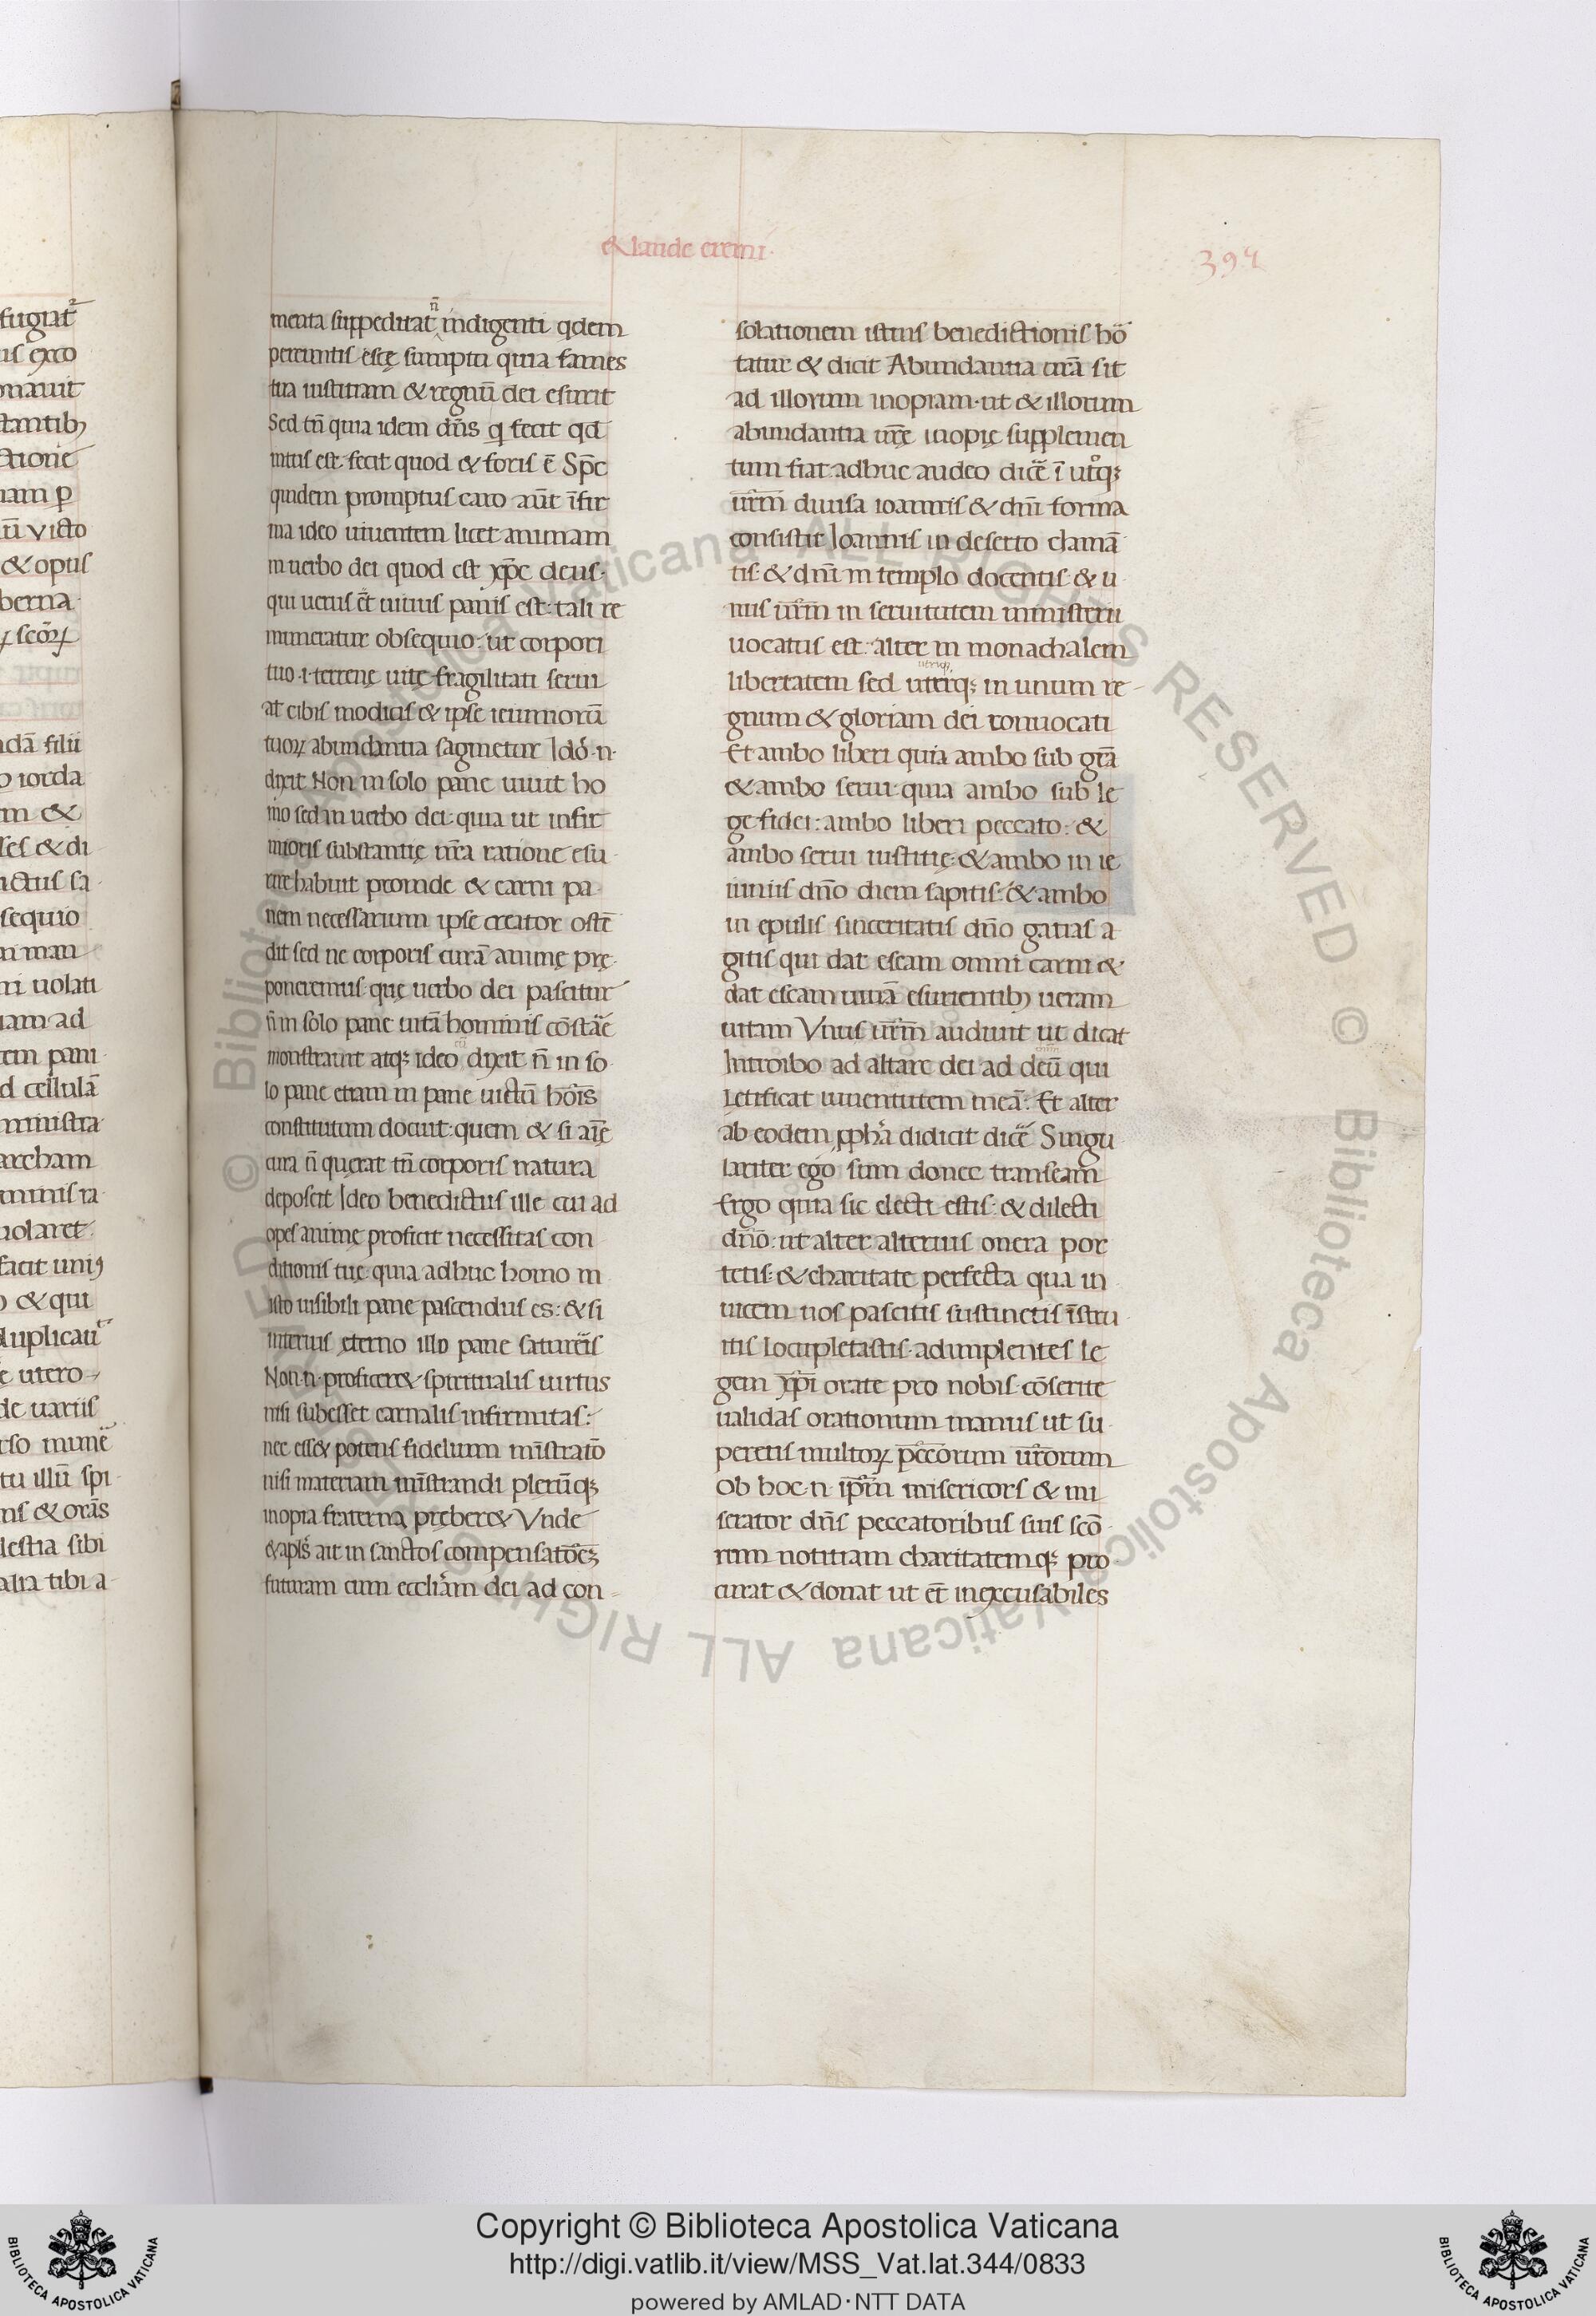 & laude eremi·
394
menta suppeditat n̄ indigenti qdem
pereuntis escę sumptu quia fames
tua iustitiam & regnū dei esurit
Sed tn̄ quia idem dn̄s q fecit qd̄
intus est fecit quod & foris ē Sp̄c
quidem promptus caro aūt īfir
ma ideo uiuentem licet animam
in uerbo dei quod est xp̄c deus·
qui uerus et̄ uiuus panis est: tali re
muneratur obsequio: ut corpori
tuo ·i· terrenę uitę fragilitati serui
at cibis modicis & ipse ieiuniorū
tuoꝝ abundantia saginetur Ideo ·n·
dixit Non in solo pane uiuit ho
mo sed in uerbo dei: quia ut infir
mioris substantię nr̄a ratione esu
rire habuit proinde & carni pa
nem necessarium ipse creator ostē
dit sed ne corporis curā animę prę
poneremus quę uerbo dei pascitur
n̄ in solo pane uitā hominis cōstare
monstrauit atqꝫ ideo dixit n̄ in so
lo pane etiam in pane uictū hoīs
constitutum docuit: quem & si aīe
cura n̄ querat tn̄ corporis natura
deposcit Ideo benedictus ille cui ad
opes animę proficit necessitas con
ditionis tuę: quia adhuc homo in
isto uisibili pane pascendus es: & si
interius ęterno illo pane satureris
Non ·n· proficer& spiritualis uirtus
nisi subesset carnalis infirmitas:
nec ess& potens fidelium mīstratō
nisi materiam mīstrandi plerūqꝫ
inopia fraterna pręber& Vnde
& apl̄s ait in sanctos compensatōeꝫ
futuram cum eccliam dei ad con
solationem istius benedictionis ho
tatur & dicit Abundantia ur̄a sit
ad illorum inopiam· ut & illorum
abundantia ur̄ę inopię supplemen
tum fiat adhuc audeo dicē ī utrqꝫ
ur̄m diuisa ioannis & dn̄i forma
consistit Ioannis in deserto clamā
tis· & dn̄i in templo docentis· & u
nus ur̄m in seruitutem ministerii
uocatus est: alter in monachalem
utrūqꝫ
libertatem sed uterqꝫ in unum re
gnum & gloriam dei conuocati
Et ambo liberi quia ambo sub gr̄a
& ambo serui· quia ambo sub le
ge fidei: ambo liberi peccato: &
ambo serui iustitię: & ambo in ie
iuniis dn̄o diem sapitis: & ambo
in epulis sinceritatis dn̄o gatias a
gitis qui dat escam omni carni &
dat escam uiuā esurientibꝫ ueram
uitam Vnus ur̄m audiuit ut dicat
Introibo ad altare dei ad deū qui
Lętificat iuuentutem meā: Et alter
ab eodem ꝓpha didicit dicē Singu
lariter ego sum donec transeam
Ergo quia sic electi estis: & dilecti
dn̄o: ut alter alterius onera por
tetis: & charitate perfecta qua in
uicem uos pascitis sustinetis īstru
itis locupletastis· adimplentes le
gem xp̄i orate pro nobis· cōserite
ualidas orationum manus ut su
peretis multoꝝ pecc̄orum nr̄orum
Ob hoc ·n· ip̄m misericors & mi
serator dn̄s peccatoribus suis scō
rum notitiam charitatemqꝫ pro
curat & donat ut et̄ inexcusabiles
Copyright © Biblioteca Apostolica Vaticana
http://digi.vatlib.it/view/MSS_Vat.lat.344/0833
powered by AMLAD·NTT DATA